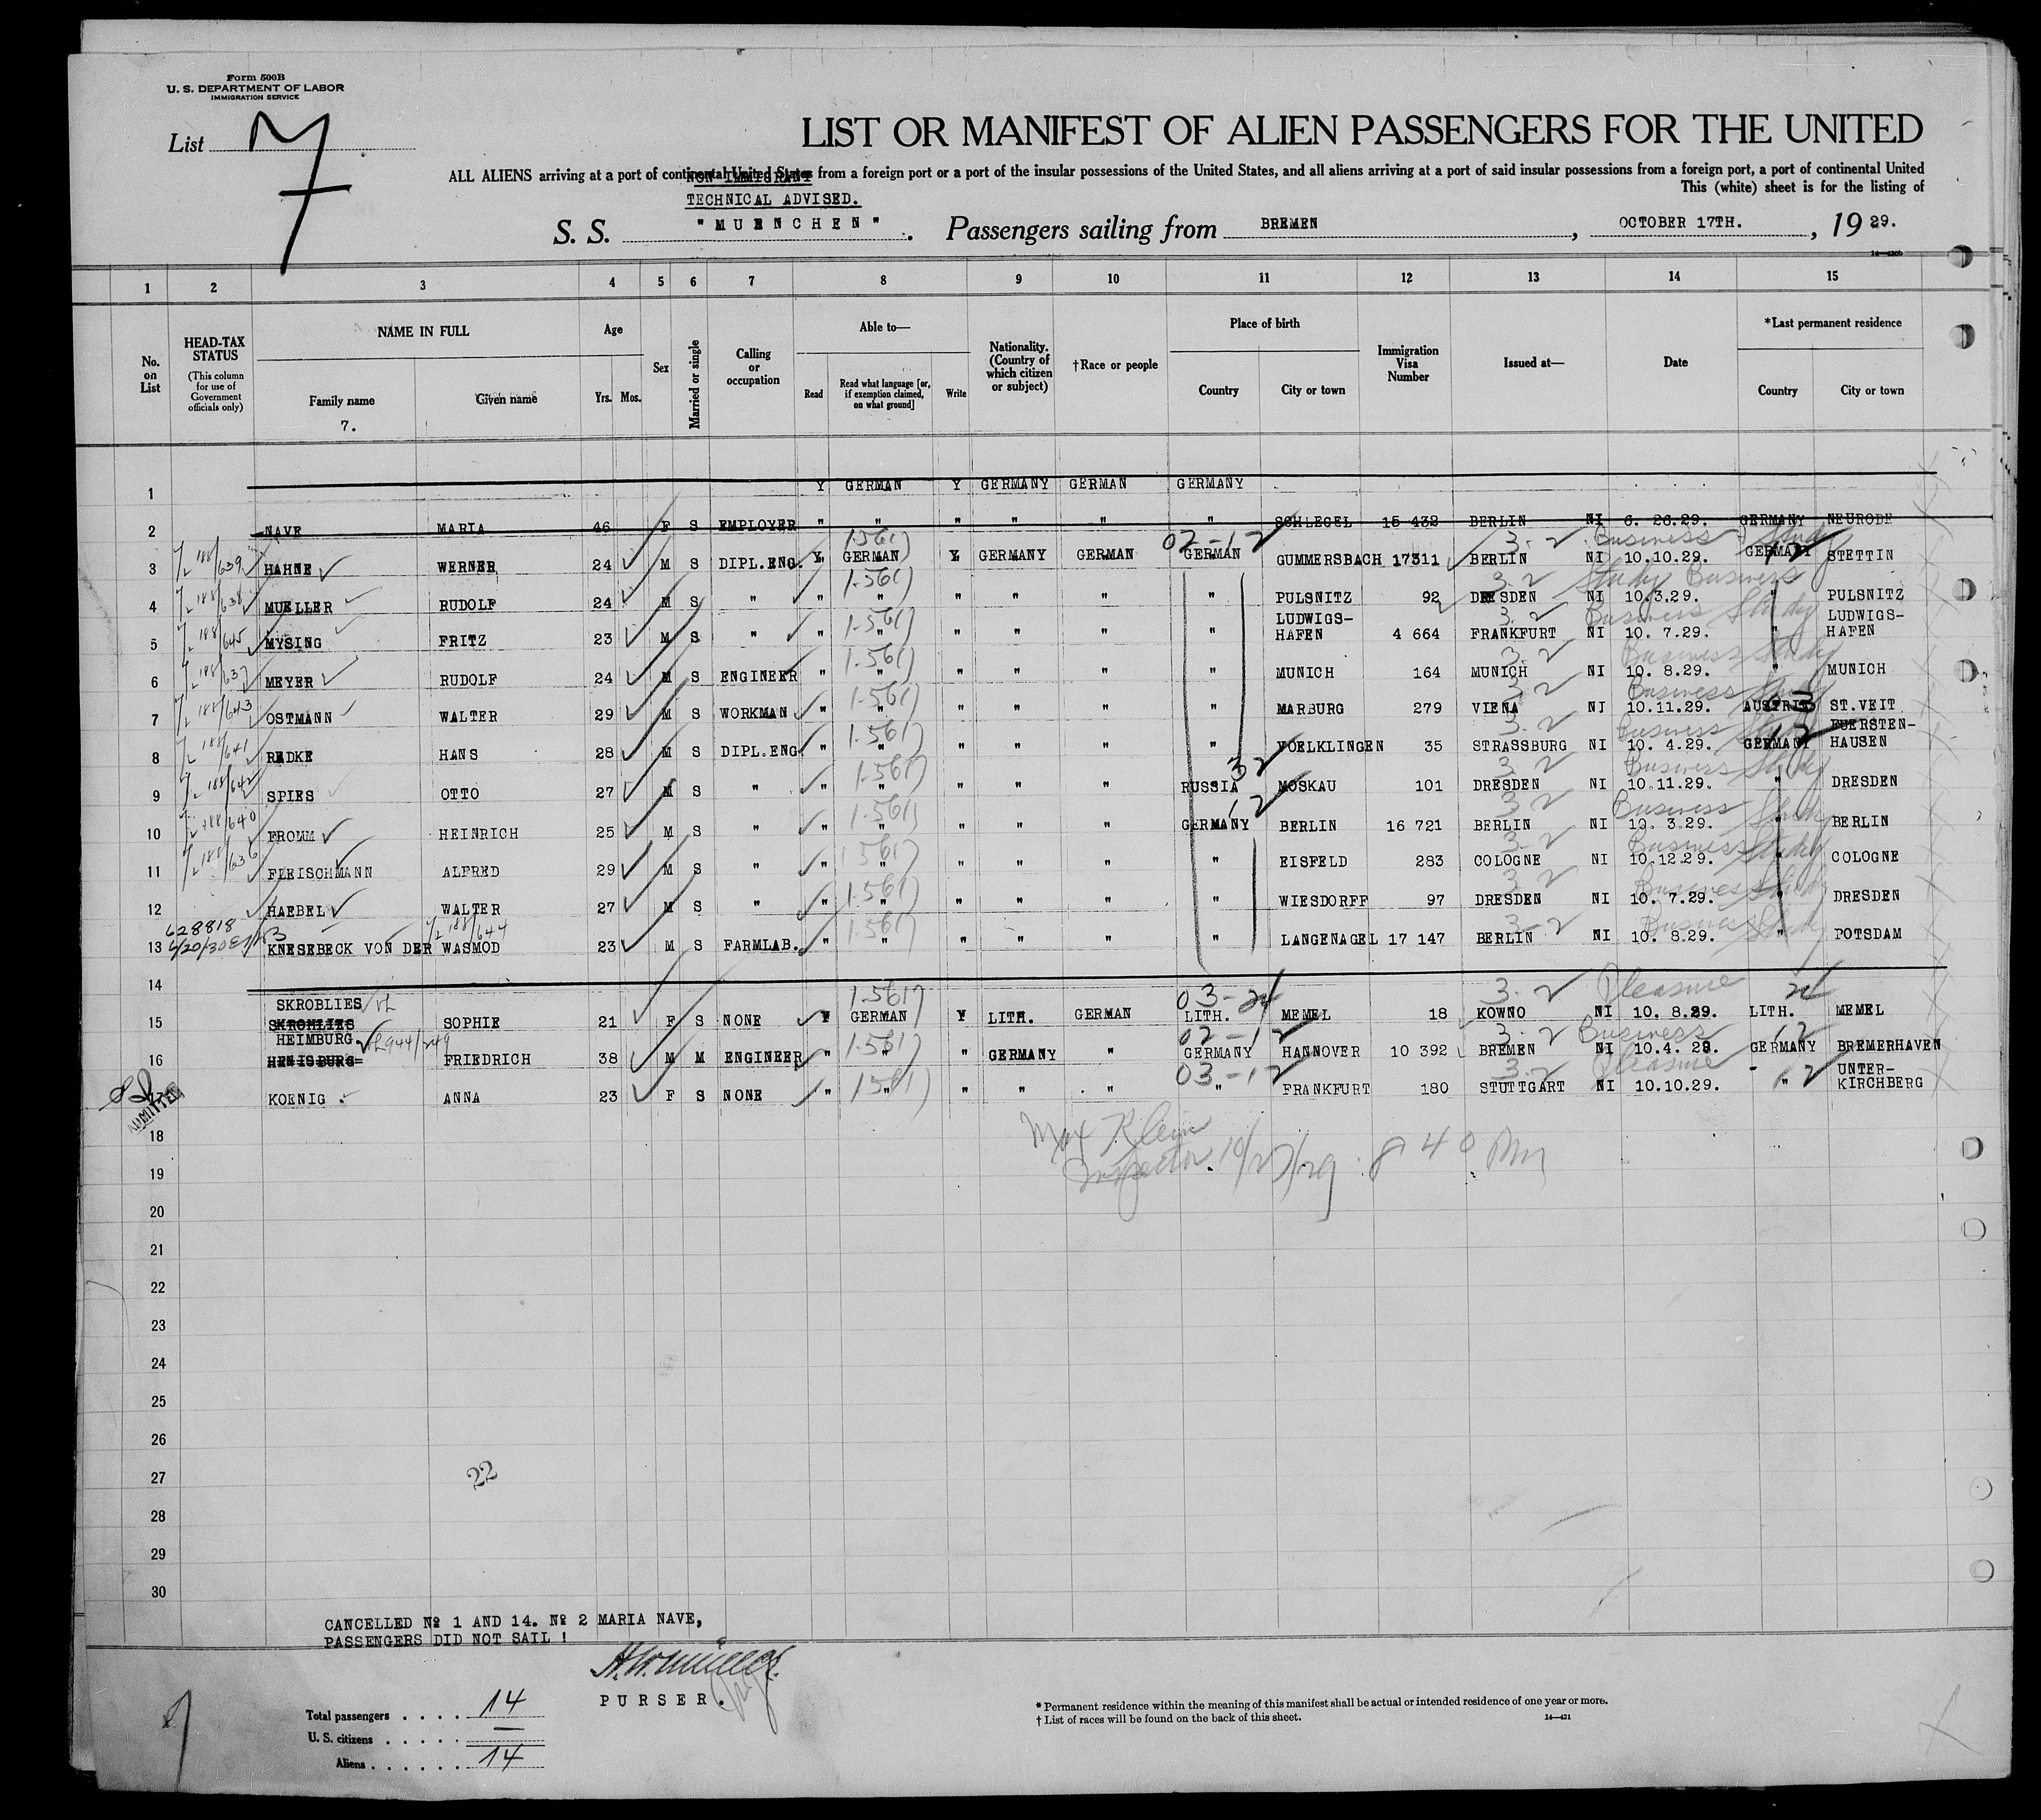 Form 500B
U. S. DEPARTMENT OF LABOR
IMMIGRATION SERVICE
List 7
LIST OR MANIFEST OF ALIEN PASSENGERS FOR THE UNITED
ALL ALIENS arriving at a port of continental United States from a foreign port or a port of the insular possessions of the United States, and all aliens arriving at a port of said insular possessions from a foreign port, a port of continental United
This (white) sheet is for the listing of
NON IMMIGRANT
TECHNICAL ADVISED.
S. S. "MUENCHEN". Passengers sailing from BREMEN, OCTOBER 17TH., 1929.
1 2 3 4 5 6 7 8 9 10 11 12 13 14 15
No. on List
HEAD-TAX STATUS (This column for use of Government officials only)
NAME IN FULL Family name Given name
7.
Age Yrs. Mos.
Sex
Married or single
Calling or occupation
Able to— Read Read what language [or, if exemption claimed, on what ground] Write
Nationality. (Country of which citizen or subject)
†Race or people
Place of birth Country City or town
Immigration Visa Number
Issued at—
Date
*Last permanent residence Country City or town
1 Y GERMAN Y GERMANY GERMAN GERMANY
2 NAVE MARIA 46 F S EMPLOYER " " " " " " SCHLEGEL 15 432 BERLIN NI 6. 26.29. GERMANY NEURODE
3 7/2 188/639 HAHNE WERNER 24 M S DIPL.ENG. Y GERMAN 1-561) Y GERMANY GERMAN 02-12 GERMAN GUMMERSBACH 17311 BERLIN 3-2 NI 10.10.29. Business Study GERMANY 12 STETTIN
4 7/2 188/638 MUELLER RUDOLF 24 M S " " " 1-561) " " " " PULSNITZ 92 DRESDEN 3-2 NI 10.3.29. Study Business " PULSNITZ
5 7/2 188/645 MYSING FRITZ 23 M S " " " 1-561) " " " " LUDWIGS-HAFEN 4 664 FRANKFURT 3-2 NI 10. 7.29. Business Study " LUDWIGS-HAFEN
6 7/2 188/637 MEYER RUDOLF 24 M S ENGINEER " " 1-561) " " " " MUNICH 164 MUNICH 3-2 NI 10. 8.29. Business Study " MUNICH
7 7/2 188/643 OSTMANN WALTER 29 M S WORKMAN " " 1-561) " " " " MARBURG 279 VIENA 3-2 NI 10.11.29. Business Study AUSTRIA 03 ST.VEIT
8 7/2 188/641 RADKE HANS 28 M S DIPL.ENG " " 1-561) " " " " VOELKLINGEN 35 STRASSBURG 3-2 NI 10. 4.29. Business Study GERMANY 12 FUERSTEN-HAUSEN
9 7/2 188/642 SPIES OTTO 27 M S " " " 1-561) " " " RUSSIA 32 MOSKAU 101 DRESDEN 3-2 NI 10.11.29. Business Study " DRESDEN
10 7/2 188/640 FROMM HEINRICH 25 M S " " " 1-561) " " " GERMANY 12 BERLIN 16 721 BERLIN 3-2 NI 10. 3.29. Business Study " BERLIN
11 7/2 188/636 FLEISCHMANN ALFRED 29 M S " " " 1-561) " " " " EISFELD 283 COLOGNE 3-2 NI 10.12.29. Business Study " COLOGNE
12 HAEBEL WALTER 27 M S " " " 1-561) " " " " WIESDORFF 97 DRESDEN 3-2 NI 10. 7.29. Business Study " DRESDEN
628818
13 KNESEBECK VON DER WASMOD 7/2 188/644 23 M S FARMLAB. " " 1-561) " " " " LANGENAGEL 17 147 BERLIN 3-2 NI 10. 8.29. Business Study " POTSDAM
14
SKROBLIES
15 SKROHLIES SOPHIE 21 F S NONE Y GERMAN 1-561) Y LITH. GERMAN 03-24 LITH. MEMEL 18 KOWNO 3-2 NI 10. 8.29. Pleasure LITH. 24 MEMEL
HEIMBURG
16 HENISBURG= FRIEDRICH 38 M M ENGINEER " " 1-561) " GERMANY " 02-12 GERMANY HANNOVER 10 392 BREMEN 3-2 NI 10.4. 29. Business GERMANY 12 BREMERHAVEN
ADMITTED KOENIG ANNA 23 F S NONE " " 1561) " " " 03-12 " FRANKFURT 180 STUTTGART 3-2 NI 10.10.29. Pleasure " 12 UNTER-KIRCHBERG
18
Max Klein
19 Inspector. 10/27/29. 8 40 PM
20
21
22
23
24
25
26
27 22
28
29
30
CANCELLED № 1 AND 14. № 2 MARIA NAVE,
PASSENGERS DID NOT SAIL !
PURSER.
Total passengers . . . . 14
U. S. citizens . . . . . —
Aliens . . . . . . 14
* Permanent residence within the meaning of this manifest shall be actual or intended residence of one year or more.
† List of races will be found on the back of this sheet.
14—431